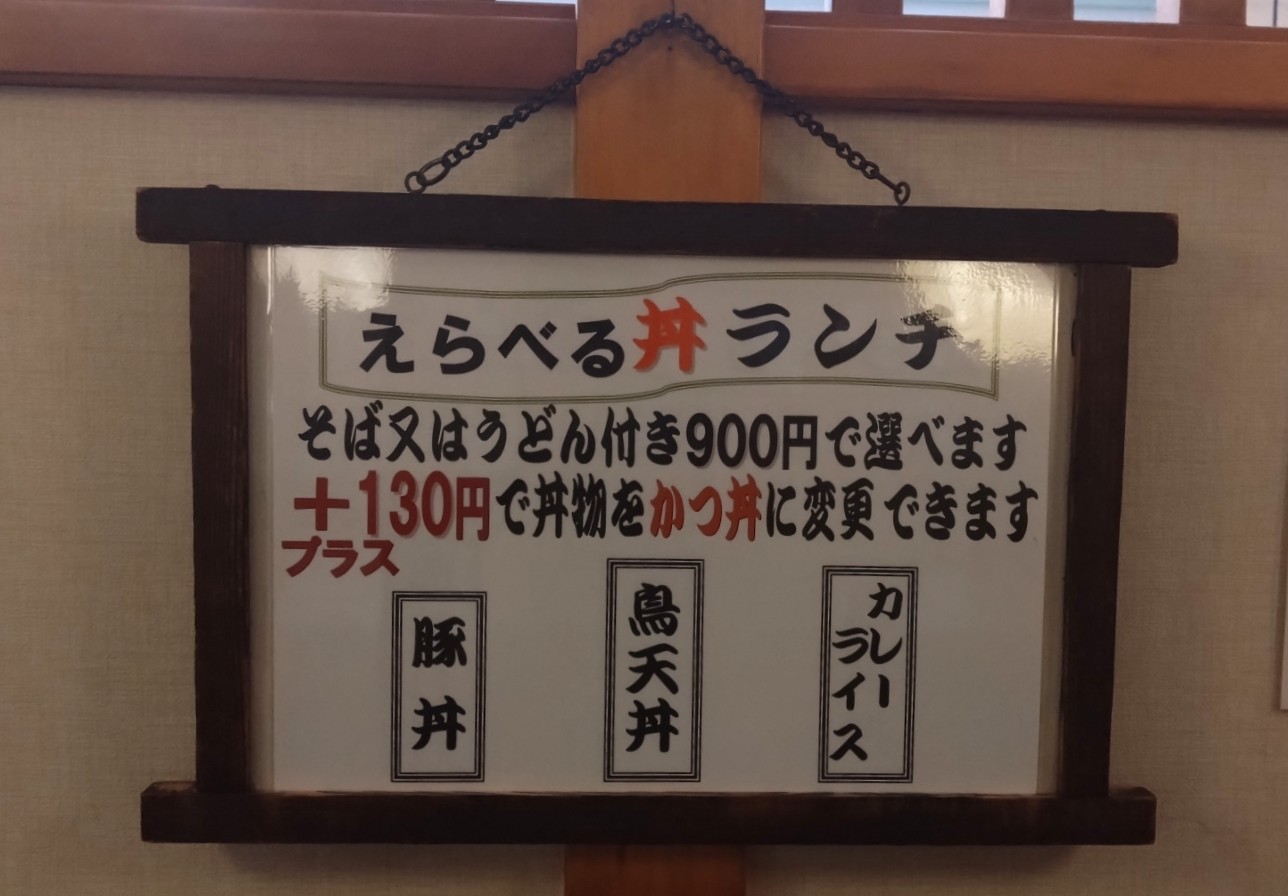 えらべる丼ランチ
そば又はうどん付き900円で選べます
+130円で丼物をかつ丼に変更できます
プラス
豚丼
鳥天丼
カレー
ライス